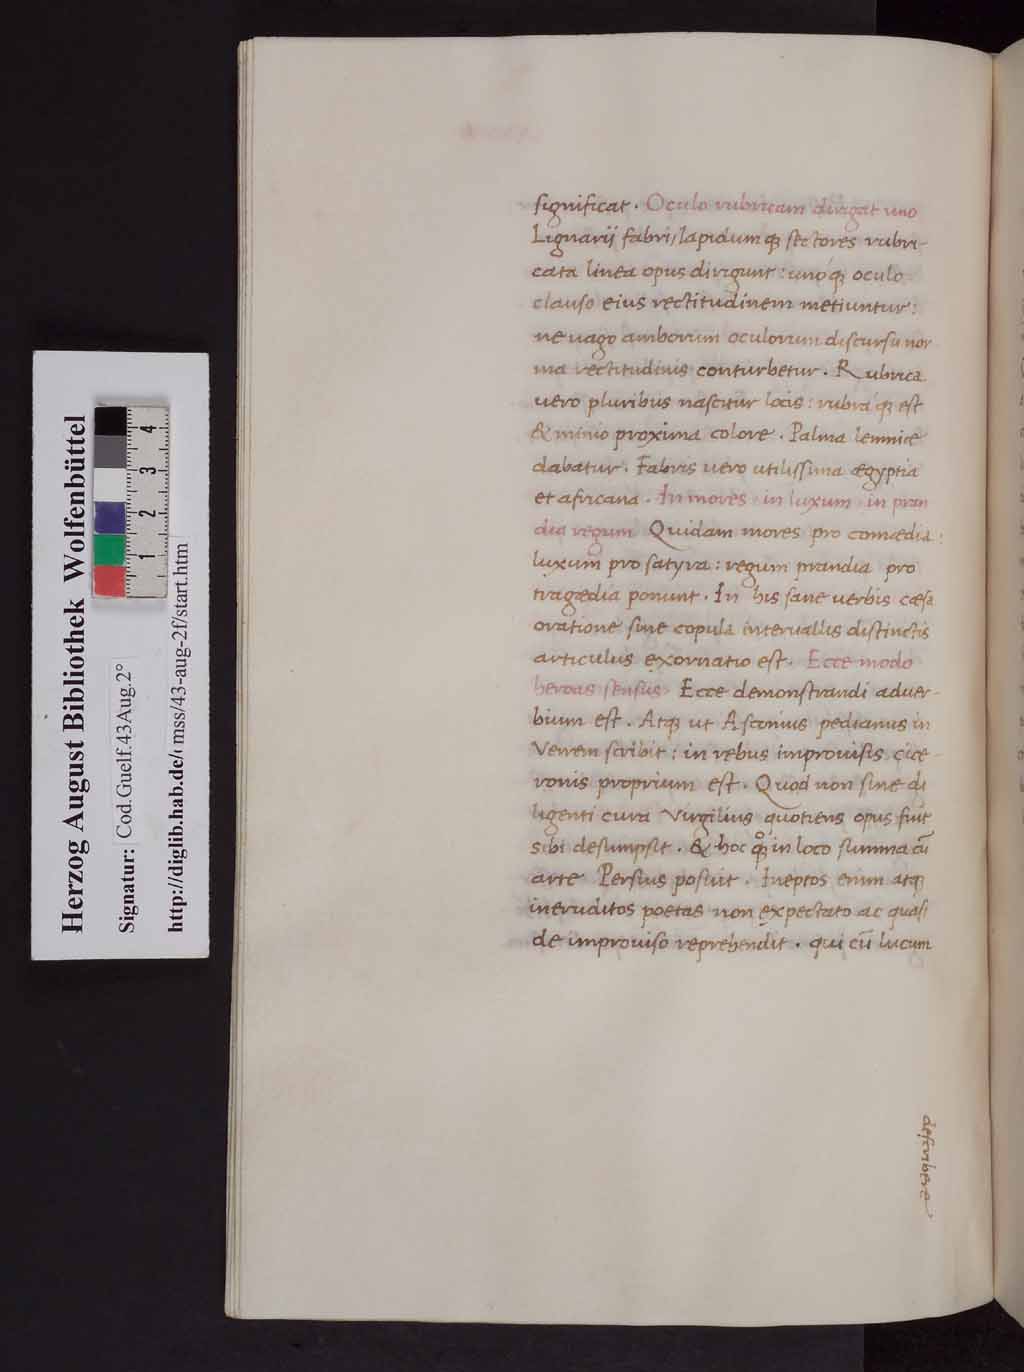 significat . Oculo rubricam dirigat uno
Lignarii fabri, lapidumq; sectores rubri-
cata linea opus dirigunt : unóq; oculo
clauso eius rectitudinem metiuntur :
ne uago amborum oculorum discursu nor
ma rectitudinis conturbetur . Rubrica
uero pluribus nascitur locis : rubráq; est
& minio proxima colore . Palma lemnię
dabatur . Fabris uero utilissima ægyptia
et africana . In mores . in luxum . in pran
dia regum Quidam mores pro comædia :
luxum pro satyra : regum prandia pro
tragædia ponunt . In his sane uerbis cæsa
oratione sine copula interuallis distinctis
articulus exornatio est . Ecce modo
heroas sensus . Ecce demonstrandi aduer-
bium est . Atq; ut Asconius pedianus in
Verrem scribit : in rebus improuisis cice-
ronis proprium est . Quod non sine di
ligenti cura Virgilius quotiens opus fuit
sibi desumpsit . & hoc qq; in loco summa cū
arte Persius posuit . Ineptos enim atq;
ineruditos poetas non expectato ac quasi
de improuiso reprehendit . qui cū lucum
describere
Herzog August Bibliothek Wolfenbüttel
Signatur: Cod.Guelf.43Aug.2°
http://diglib.hab.de/mss/43-aug-2f/start.htm
1 2 3 4